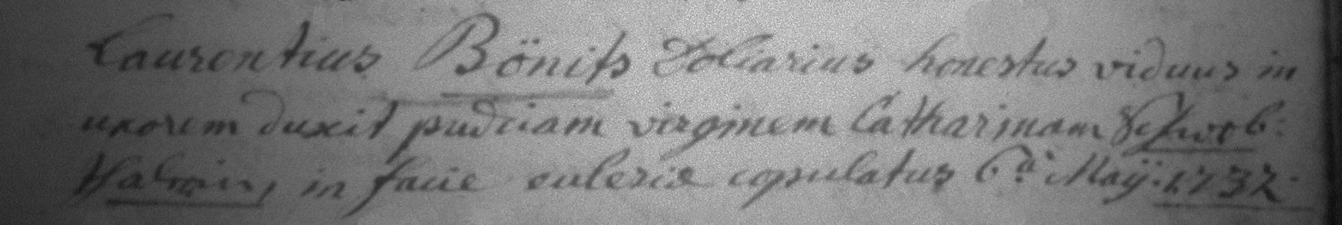 Laurentius Bönits Doliarius honestus viduus in
uxorem duxit pudicam virginem Catharinam
in facie eclesiæ copulatus 6ta Maÿ. 1732.